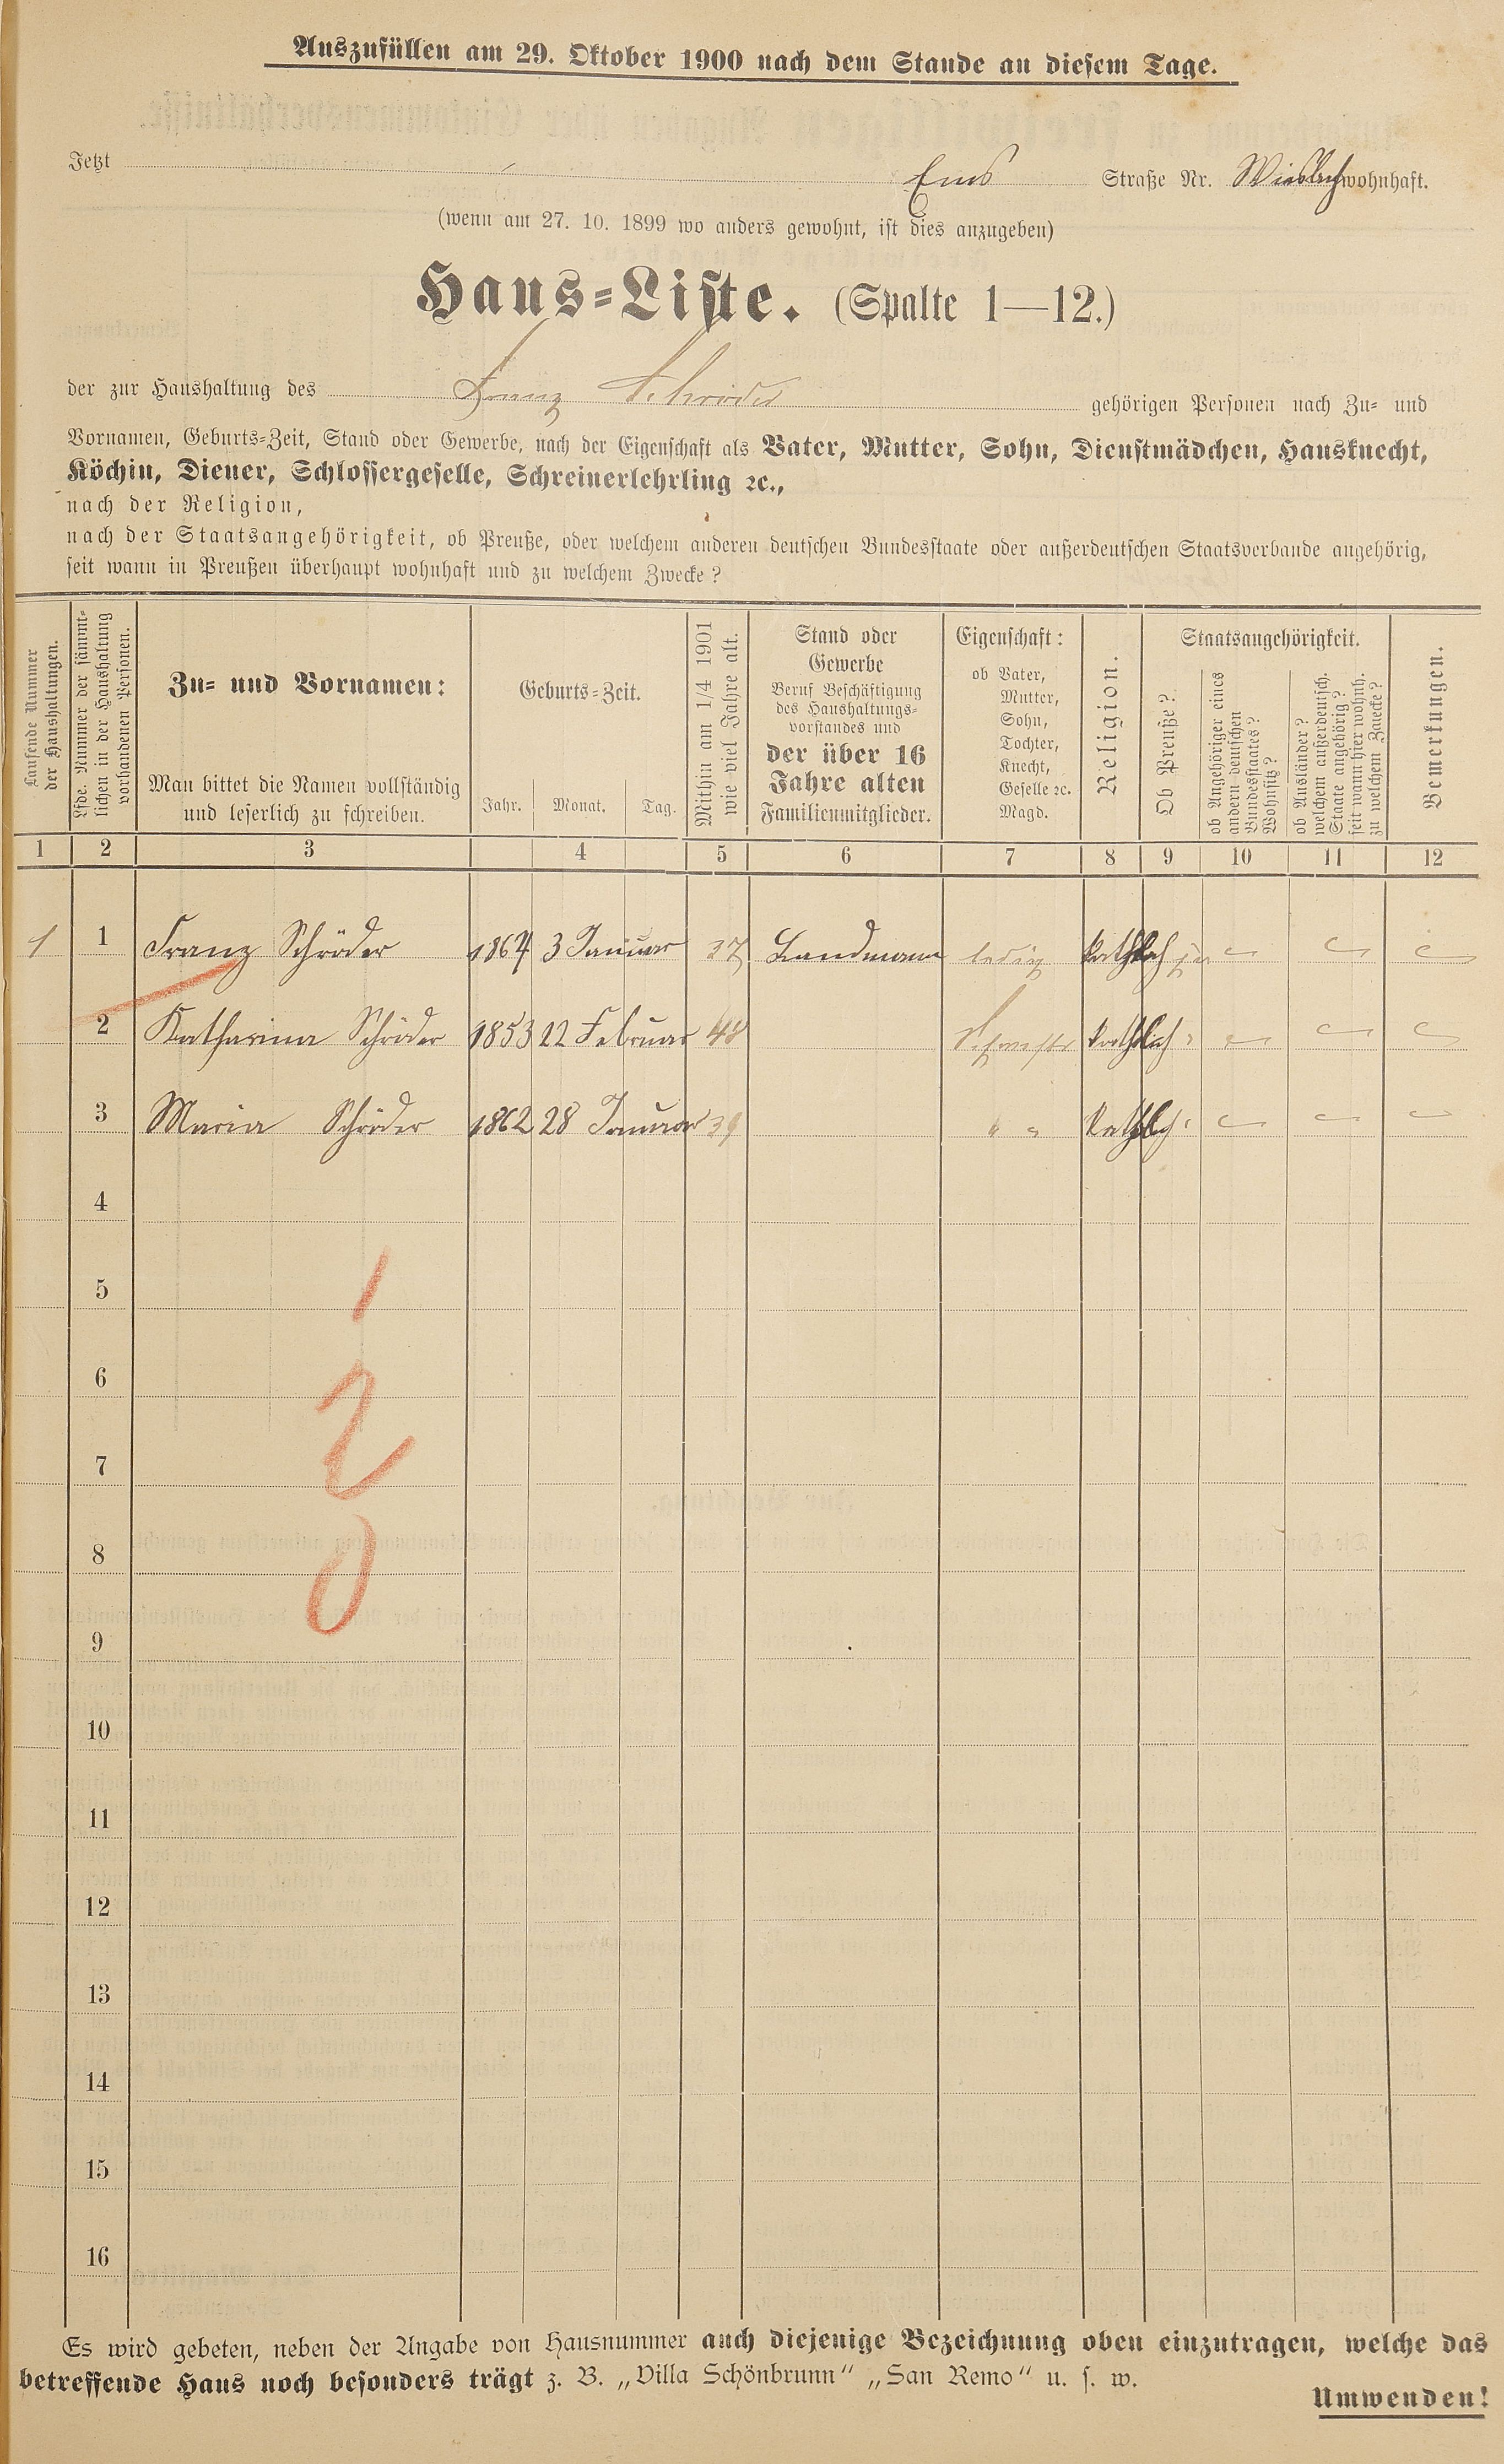 Auszufüllen am 29. Oktober 1900 nach dem Stande an diesem Tage.
Jetzt Ems Straße Nr. wohnhaft.
(wenn am 27. 10. 1899 wo anders gewohnt, ist dies anzugeben)
Haus-Liste. (Spalte 1—12.)
der zur Haushaltung des Franz Schröder gehörigen Personen nach Zu- und
Vornamen, Geburts-Zeit, Stand oder Gewerbe, nach der Eigenschaft als Vater, Mutter, Sohn, Dienstmädchen, Hausknecht,
Köchin, Diener, Schlossergeselle, Schreinerlehrling ꝛc.,
nach der Religion,
nach der Staatsangehörigkeit, ob Preuße, oder welchem anderen deutschen Bundesstaate oder außerdeutschen Staatsverbande angehörig,
seit wann in Preußen überhaupt wohnhaft und zu welchem Zwecke?
Laufende Nummer
der Haushaltungen.
Lfde. Nummer der sämmt-
lichen in der Haushaltung
vorhandenen Personen.
Zu- und Vornamen:
Man bittet die Namen vollständig
und leserlich zu schreiben.
Geburts-Zeit.
Jahr. Monat. Tag.
Mithin am 1/4 1901
wie viel Jahre alt.
Stand oder
Gewerbe
Beruf Beschäftigung
des Haushaltungs-
vorstandes und
der über 16
Jahre alten
Familienmitglieder.
Eigenschaft:
ob Vater,
Mutter,
Sohn,
Tochter,
Knecht,
Geselle ꝛc.
Magd.
Religion.
Staatsangehörigkeit.
Ob Preuße?
ob Angehöriger eines
andern deutschen
Bundesstaates?
Wohnsitz?
ob Ausländer?
welchem außerdeutsch.
Staate angehörig?
seit wann hier wohnh.
zu welchem Zwecke?
Bemerkungen.
1 2 3 4 5 6 7 8 9 10 11 12
1 1 Franz Schröder 1864 3 Januar 37 Landmann ledig kathlich ja
2 Katharina Schröder 1853 22 Februar 48 Schwester kathlich "
3 Maria Schröder 1862 28 Januar 39 " " kathlich "
4
5
1
6
2
7
8
0
9
10
11
12
13
14
15
16
Es wird gebeten, neben der Angabe von Hausnummer auch diejenige Bezeichnung oben einzutragen, welche das
betreffende Haus noch besonders trägt z. B. „Villa Schönbrunn“ „San Remo“ u. s. w.
Umwenden!